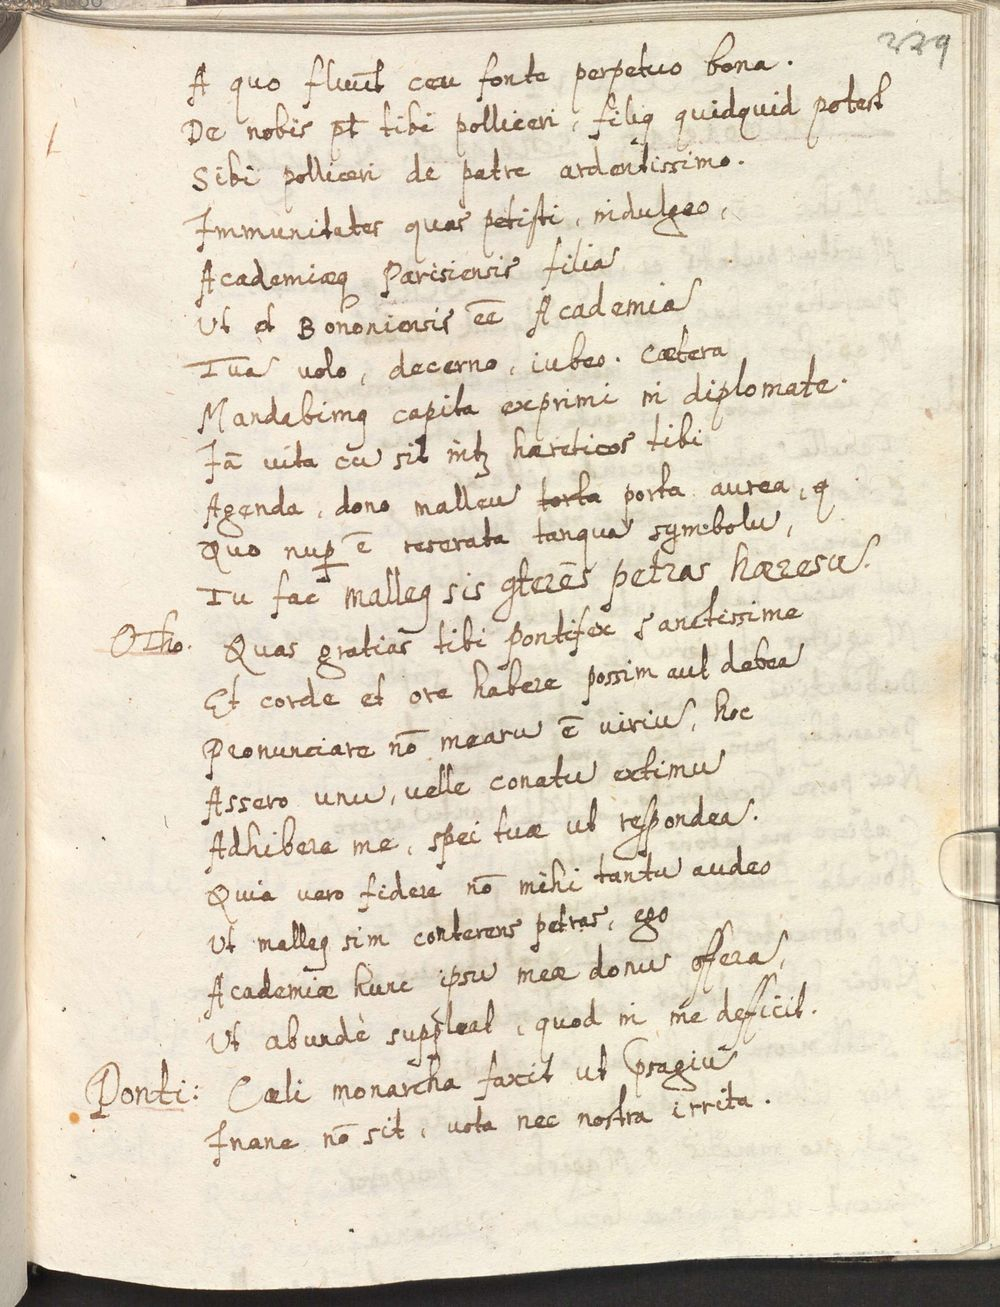 229
A quo fluūt ceu fonte perpetuo bona.
De nobis pt̄ tibi polliceri, filiꝗ quidquid potest
Sibi polliceri de patre ardentissimo.
Immunitates quas petisti, indulgeo,
Academiæꝗ Parisiensis filia
Ut et Bononiensis eē Academia
Tua volo, decerno, iubeo. Cætera
Mandabimꝗ capita exprimi in diplomate.
Iā vita cū sit int̄ hæreticos tibi
Agenda, dono malleū torta porta aurea, ꝗ
Quo nup ē reserata tanquā symbolū,
Tu fac malleꝗ sis ꝯterēs petras hæresū.
Otho. Quas gratias tibi Pontifex Sanctissime
Et corde et ore habere possim aut debeā
Pronunciare nō mearū ē viriū, hoc
Assero unū, velle conatū extimū
Adhibere me, spei tuæ ut respondeā.
Quia vero fidere nō mihi tantū audeo
Ut malleꝗ sim conterens petras, ego
Academiæ hunc ipsū meæ donū offerā,
Ut abundè suppleat, quod in me deficit.
Ponti: Cæli monarcha faxit ut p̄sagiū
Inane nō sit, vota nec nostra irrita.